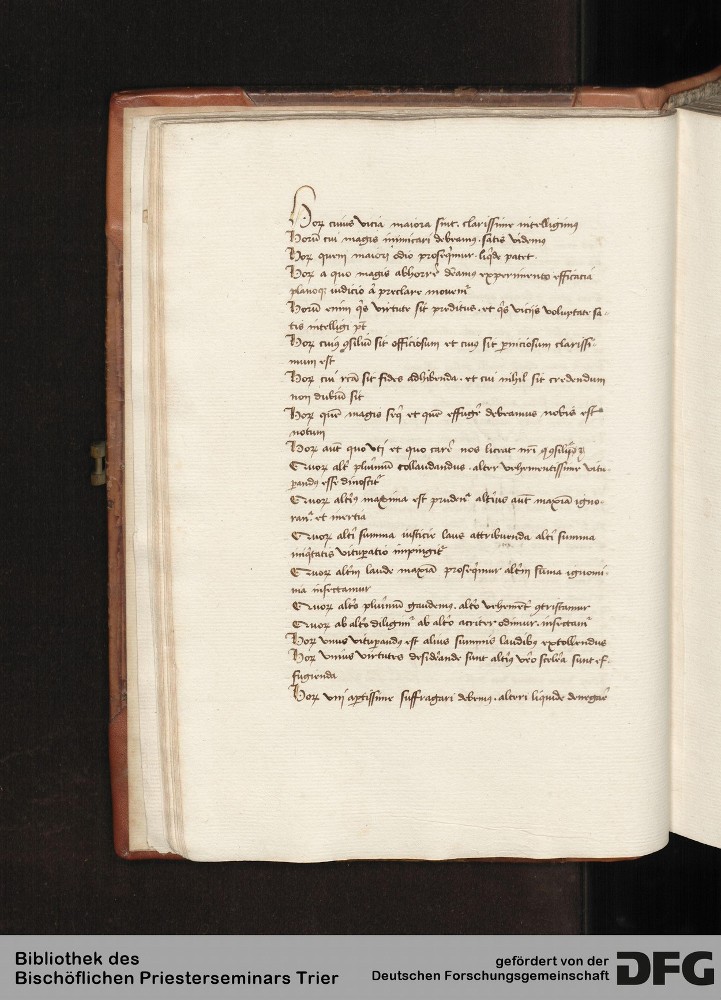 Horꝝ cuius vicia maiora sint. clarissime intelligimꝰ
Horū cui magis inimicari debeamꝰ. satis videmꝰ
Horꝝ quem maiori odio proseq̄mur. liq̄de patet.
Horꝝ a quo magis abhorrē deamꝰ experimento efficacia
planoqꝫ iudicio ā preclare mouemͬ
Horū enim q̄s virtute sit preditus. et q̄s vicijs voluptate sa-
tis intelligi pt̄
Horꝝ cuiꝰ ꝯsiliū sit officiosum et cuiꝰ sit ꝑniciosum clarissi-
mum est
Horꝝ cui rcā sit fides adhibenda. et cui nihil sit credendum
non dubiū sit
Horꝝ quē magis seq̄ et quē effugē debeamus nobis est
notum
Horꝝ aūt quo vti et quo carē nos liceat
Quorꝝ altʼ plurimū collaudandus. alter vehementissime vitu-
ꝑandꝰ esse dinoscitͬ
Quorꝝ altiꝰ maxima est prudenͨ altius aūt maxīa igno-
ranͨ et inertia
Quorꝝ altʼi summa iusticie laus attribuenda altʼi summa
iniq̄tatis vituꝑatio impingitͬ
Quorꝝ altʼm laude maxīa proseq̄mur altʼm sūma ignomi-
nia insectamur
Quorꝝ altʼo plurimū gaudemꝰ. altʼo vehemenͭ ꝯtristamur
Quorꝝ ab altʼo diligimͬ ab altʼo acriter odimur. insectamͬ
Horꝝ vnus vituꝑandꝰ est alius summis laudibꝰ extollendus
Horꝝ vnius virtutes desiderande sunt altiꝰ vʼo scelʼa sunt ef-
fugienda
Horꝝ vni aptissime suffragari debemꝰ. alteri liquide denegaē
Bibliothek des
Bischöflichen Priesterseminars Trier
gefördert von der
Deutschen Forschungsgemeinschaft
DFG